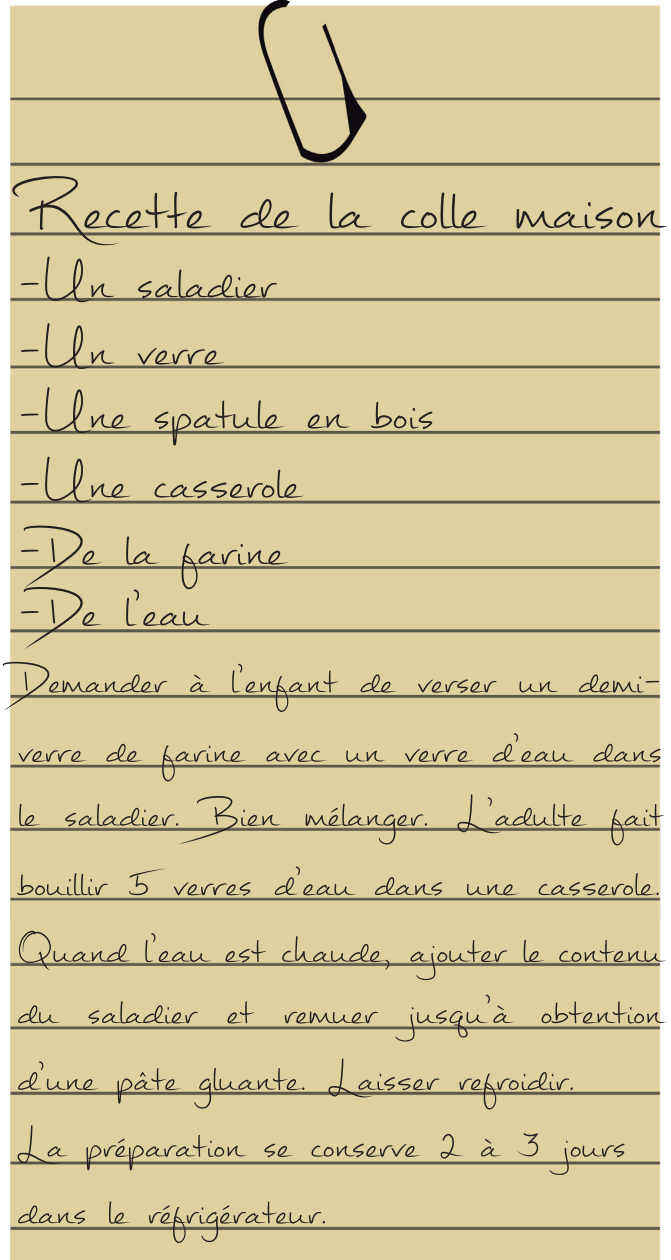 Recette de la colle maison
-Un saladier
-Un verre
-Une spatule en bois
-Une casserole
-De la farine
-De l'eau
Demander à l'enfant de verser un demi-
verre de farine avec un verre d'eau dans
le saladier. Bien mélanger. L'adulte fait
bouillir 5 verres d'eau dans une casserole.
Quand l'eau est chaude, ajouter le contenu
du saladier et remuer jusqu'à obtention
d'une pâte gluante. Laisser refroidir.
La préparation se conserve 2 à 3 jours
dans le réfrigérateur.